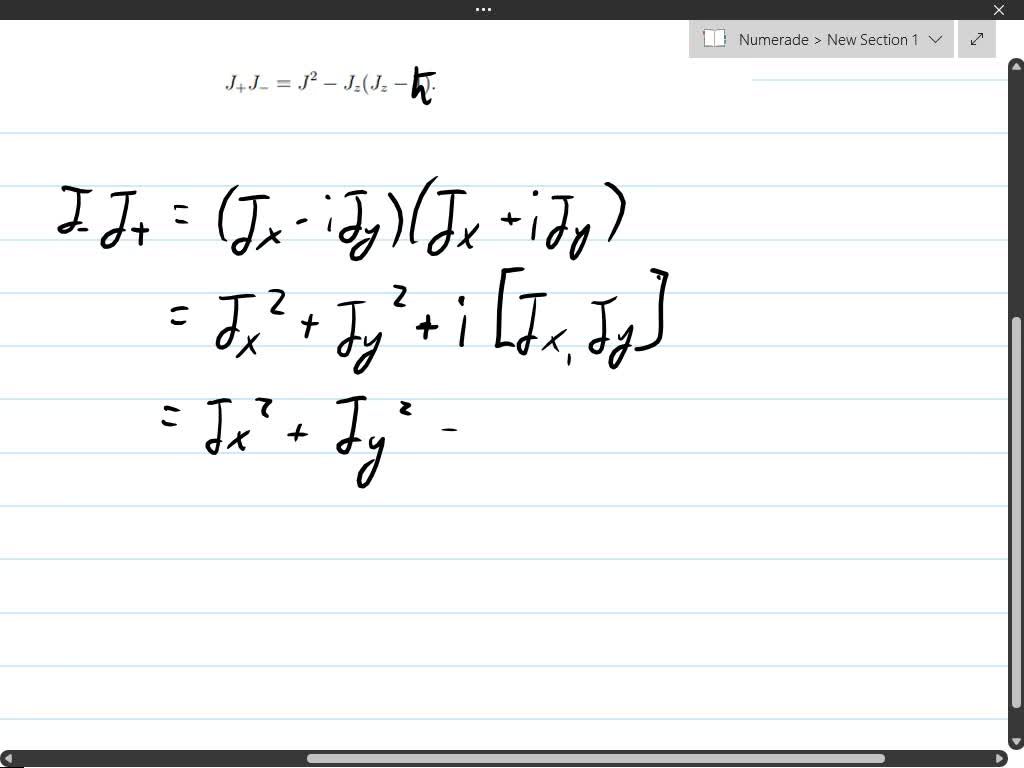 Numerade > New Section 1
J₊J₋ = J² − J_z(J_z − ℏ).
J₋J₊ = (Jₓ - iJ_y)(Jₓ + iJ_y)
= Jₓ² + J_y² + i[Jₓ, J_y]
= Jₓ² + J_y² -